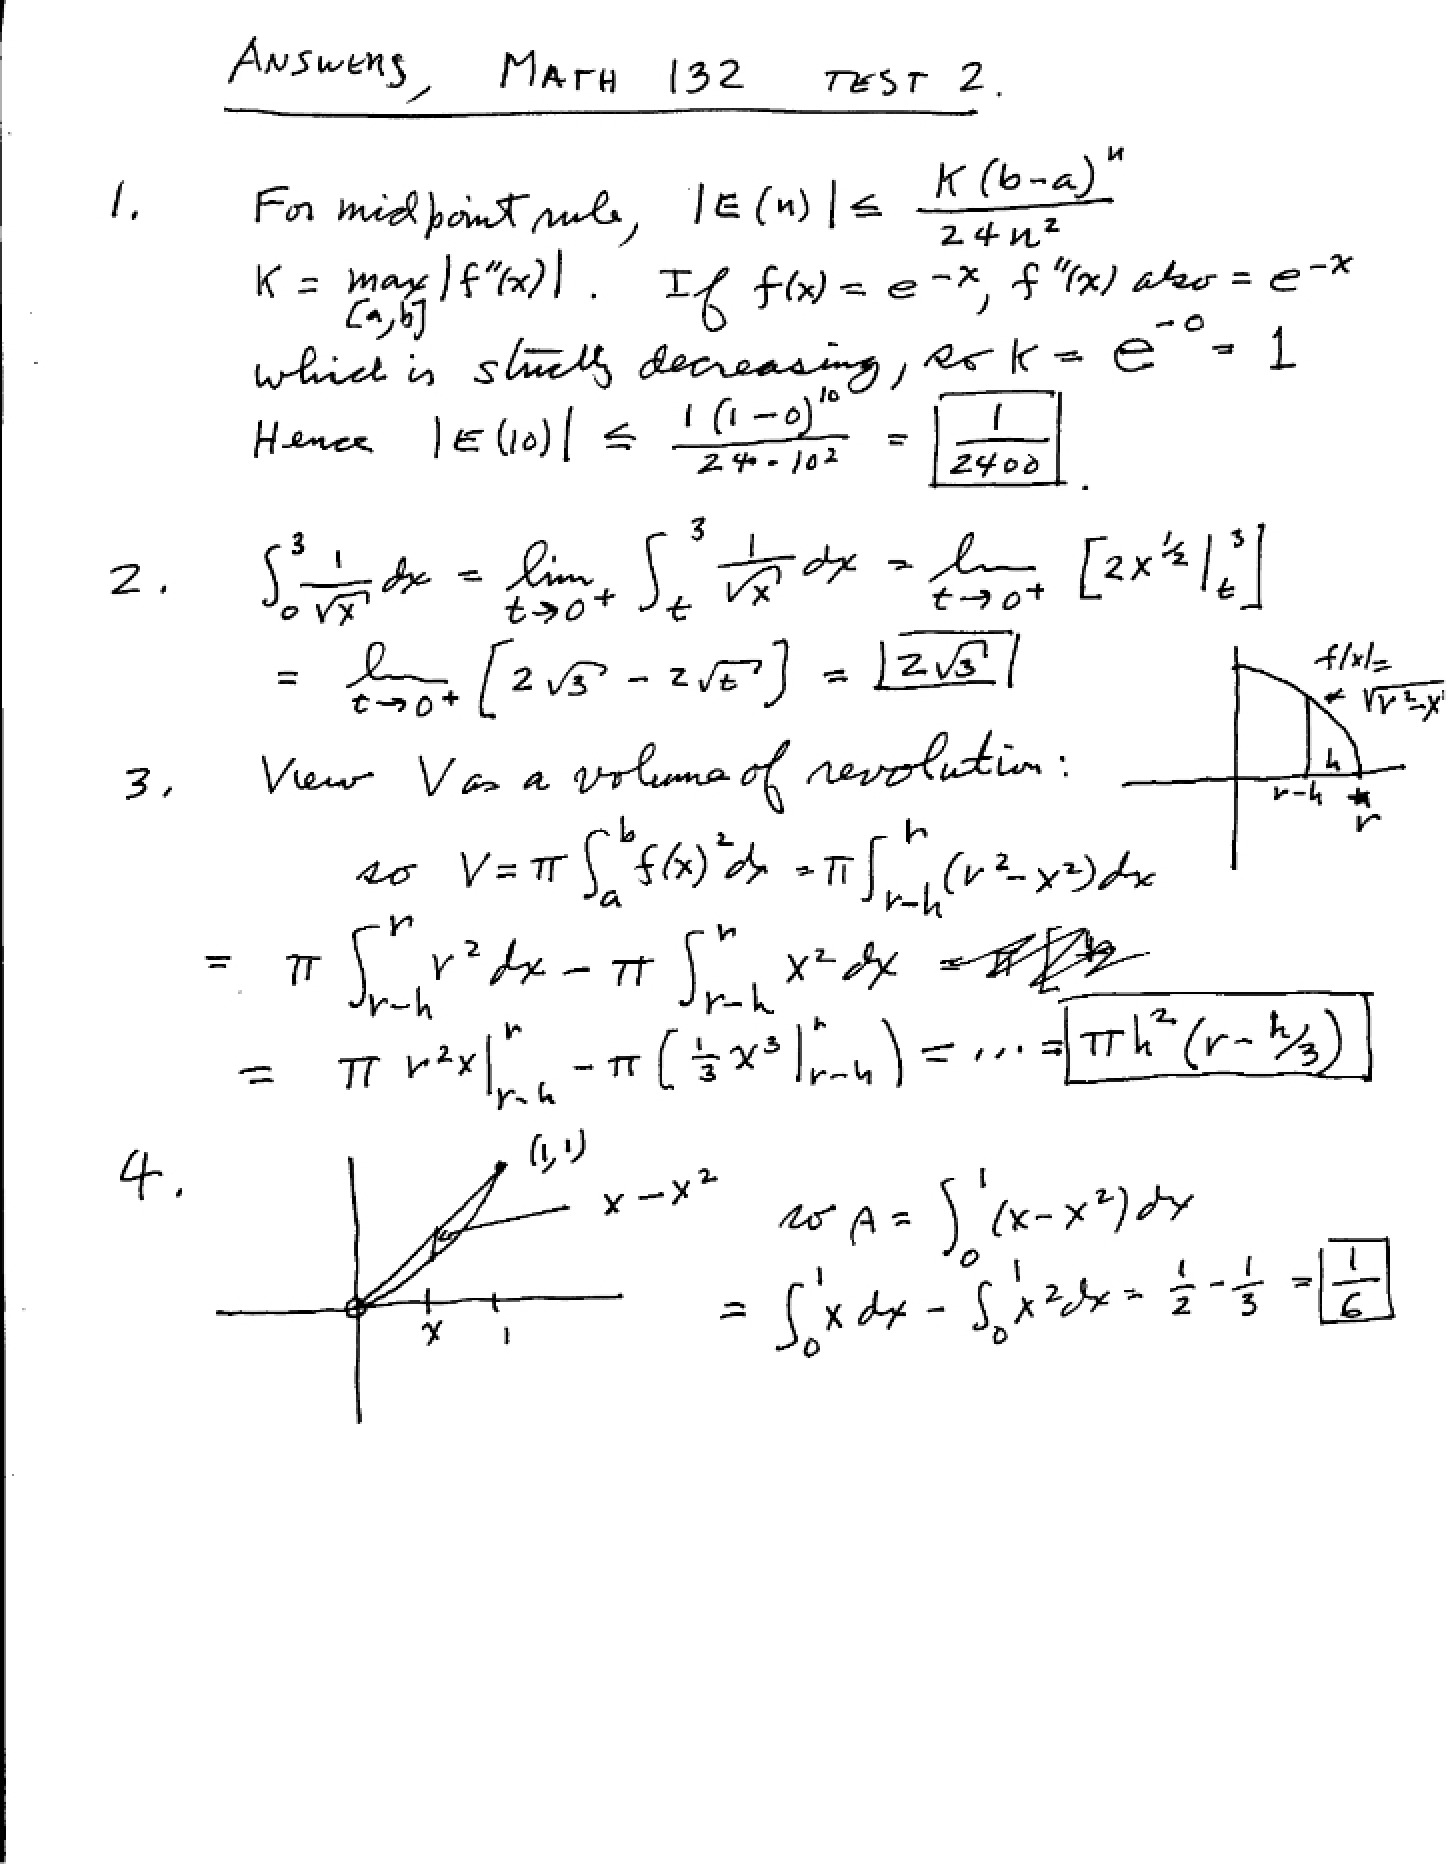 ANSWERS, MATH 132 TEST 2.
1. For midpoint rule, |E(n)| ≤ K(b-a)^n / 24n²
K = max_[a,b] |f''(x)|. If f(x) = e^-x, f''(x) also = e^-x
which is strictly decreasing, so K = e^-0 = 1
Hence |E(10)| ≤ 1(1-0)^10 / 24·10² = 1/2400.
2. ∫_0^3 1/√x dx = lim_t→0+ ∫_t^3 1/√x dx = lim_t→0+ [2x^1/2 |_t^3]
= lim_t→0+ [2√3 - 2√t] = 2√3
f(x)=
√r²-x²
h
r-h
r
3. View V as a volume of revolution:
so V = π ∫_a^b f(x)² dx = π ∫_r-h^r (r²-x²) dx
= π ∫_r-h^r r² dx - π ∫_r-h^r x² dx
= π r²x |_r-h^r - π (1/3 x³ |_r-h^r) = ... = πh²(r - h/3)
4.
(1,1)
x - x²
x 1
so A = ∫_0^1 (x-x²) dx
= ∫_0^1 x dx - ∫_0^1 x² dx = 1/2 - 1/3 = 1/6